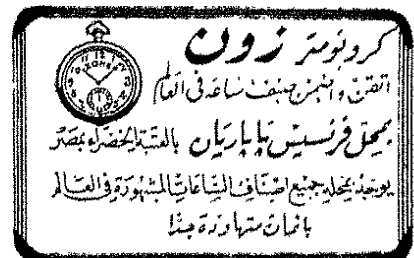 كرونومتر زون
اتقن واثمن صنف ساعه فى العالم
بمحل فرنسيس پاپازيان بالعتبة الخضراء بمصر
يوجد بمحله جميع اصناف الساعات المشهورة فى العالم
باثمان متهاودة جدا